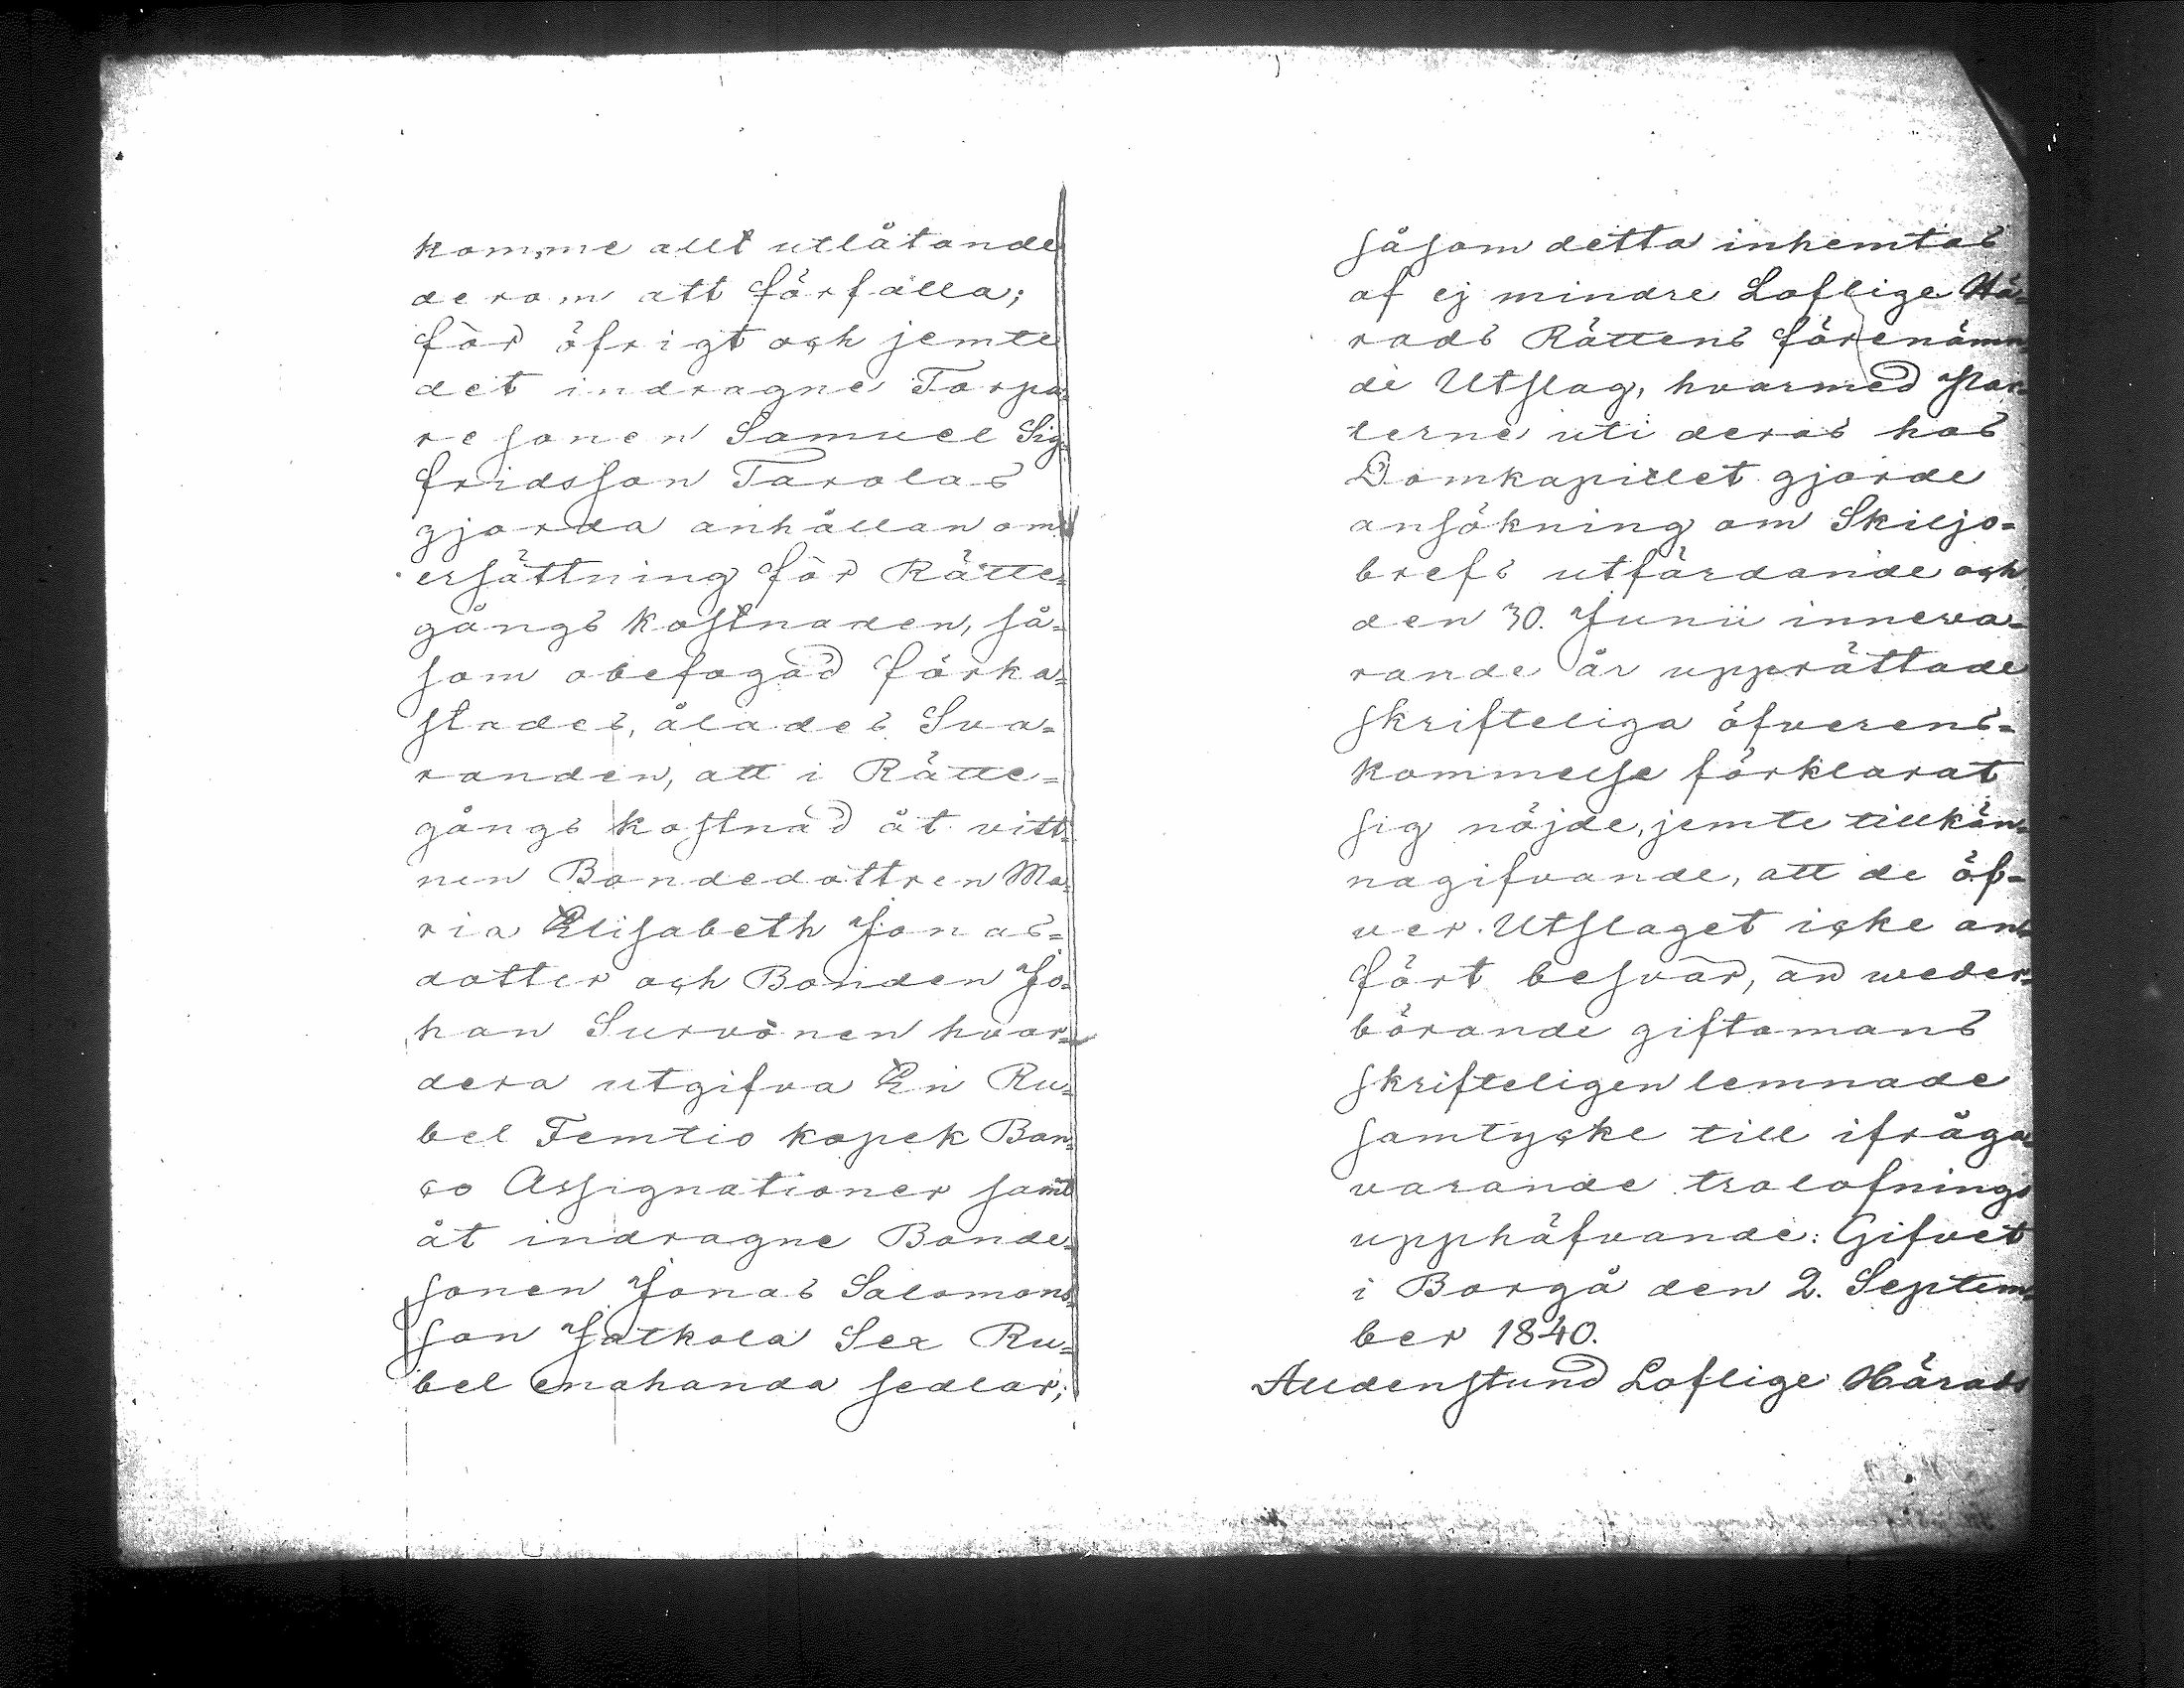 komme allt utlåtande
derom att förfalla;
för öfrigt och jemte
det indragne Torpa=
resonen Samuel Sig=
fridsson Tarolas
gjorda anhållan om
ersättning för Rätte=
gångs kostnaden, så=
som obefogad förka=
stades, ålades Sva=
randen, att i Rätte=
gångs kostnad åt vitt=
nen Bondedottren Ma=
ria Elisabeth Jonas=
dotter och Bonden Jo=
han Survonen hvar=
dera utgifva En Ru=
bel Femtio kopek Ban=
co Assignationer samt
åt indragne Bonde=
sonen Jonas Salomons=
son Jatkola Sex Ru=
bel enahanda sedlar;
såsom detta inhemtas
af ej mindre Loflige Hä=
rads Rättens förenämn=
de Utslag, hvarmed Par=
terne uti deras hos
Domkapitlet gjorde
ansökning om Skiljo=
brefs utfärdande och
den 30. Junii inneva=
rande år upprättade
skrifteliga öfverens=
kommelse förklarat
sig nöjde, jemte tillkän=
nagifvande, att de öf=
ver Utslaget icke an=
fört besvär, än weder=
börande giftomans
skrifteligen lemnade
samtycke till ifråga
varande trolofnings
upphäfvande: Gifvet
i Borgå den 2. Septem=
ber 1840.
Aldenstund Loflige Härads